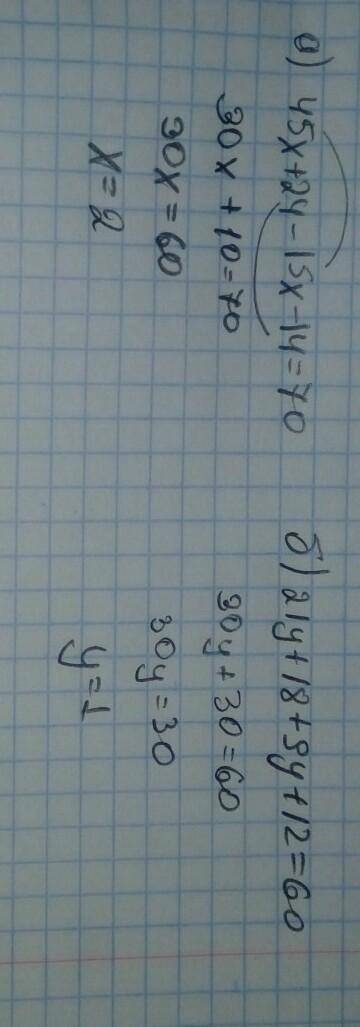 а) 45x+24-15x-14=70
30x+10=70
30x=60
x=2
б) 21y+18+9y+12=60
30y+30=60
30y=30
y=1